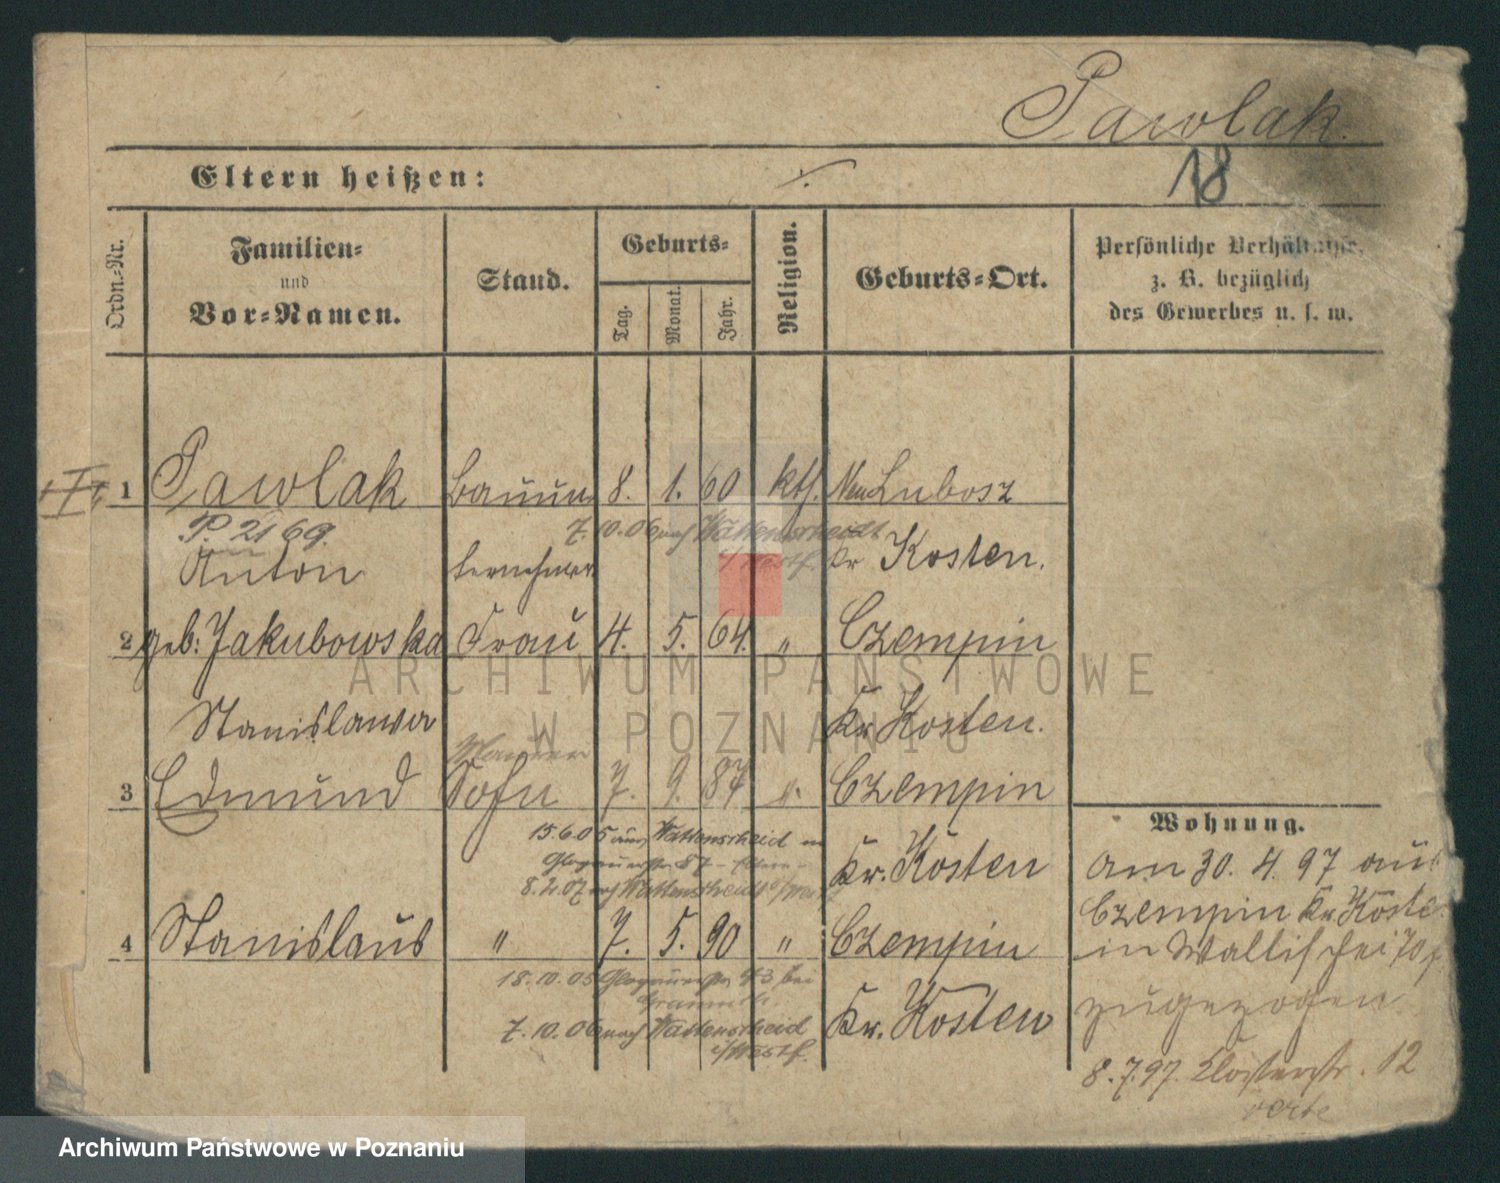 Pawlak.
18
Eltern heißen: ./.
Ordn.-Nr.
Familien-
und
Vor-Namen.
Stand.
Geburts-
Tag.
Monat.
Jahr.
Religion.
Geburts-Ort.
Persönliche Verhältnisse,
z. B. bezüglich
des Gewerbes u. s. w.
1 Pawlak Bauun 8. 1. 60 kth. Neu Lubosz
P. 2169. 7.10.06 nach Wattenscheidt
Anton ternehmer i/Westf. Kr Kosten.
2 geb. Jakubowska Frau 4. 5. 64. " Czempin
Stanislawa Kr Kosten.
Maurer
3 Edmund Sohn 7. 9. 87 ". Czempin
15.6.05 aus Wattenscheid
Glogauerstr. 87 - Eltern -
Kr. Kosten
8.2.07 nach Wattenscheidt i/Westf
4 Stanislaus " 7. 5. 90 " Czempin
18.10.05 Glogauerstr. 43 bei
Kr. Kosten
7.10.06 nach Wattenscheid
i/Westf.
Wohnung.
Am 30. 4. 97 aus
Czempin Kr. Koste
in Wallischei 70
zugezogen
8.7.97. Klosterstr. 12
verte
ARCHIWUM PAŃSTWOWE
W POZNANIU
Archiwum Państwowe w Poznaniu